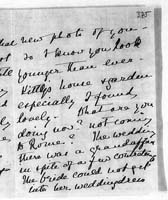 375
that new photo of you —
not so I know you look
younger than ever.
Kitty's house & garden
especially I found
lovely. What are you
doing now? not coming
to Rome? The wedding
there was a grand affair
in spite of a few contretemps
The bride could not get
into her wedding dress